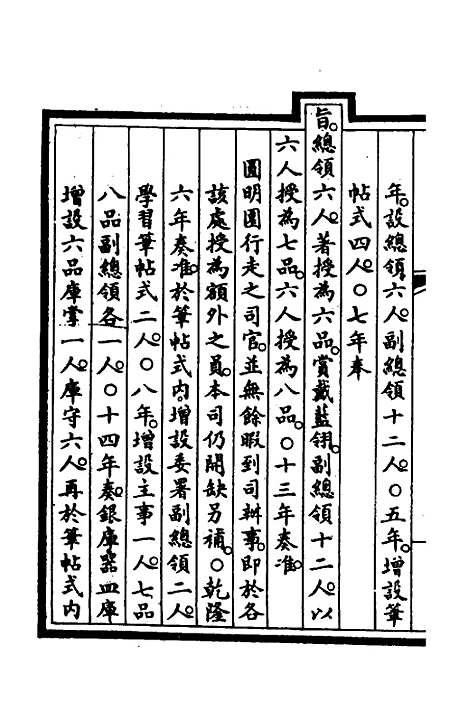 年。設總領六人。副總領十二人。○五年。增設筆
帖式四人。○七年奉
旨。總領六人。著授為六品。賞戴藍翎。副總領十二人。以
六人授為七品。六人授為八品。○十三年奏准。
圓明園行走之司官。並無餘暇到司辦事。即於各
該處授為額外之員。本司仍開缺另補。○乾隆
六年奏准。於筆帖式內。增設委署副總領二人。
學習筆帖式二人。○八年。增設主事一人。七品
八品副總領各一人。○十四年奏。銀庫器皿庫
增設六品庫掌一人。庫守六人。再於筆帖式內